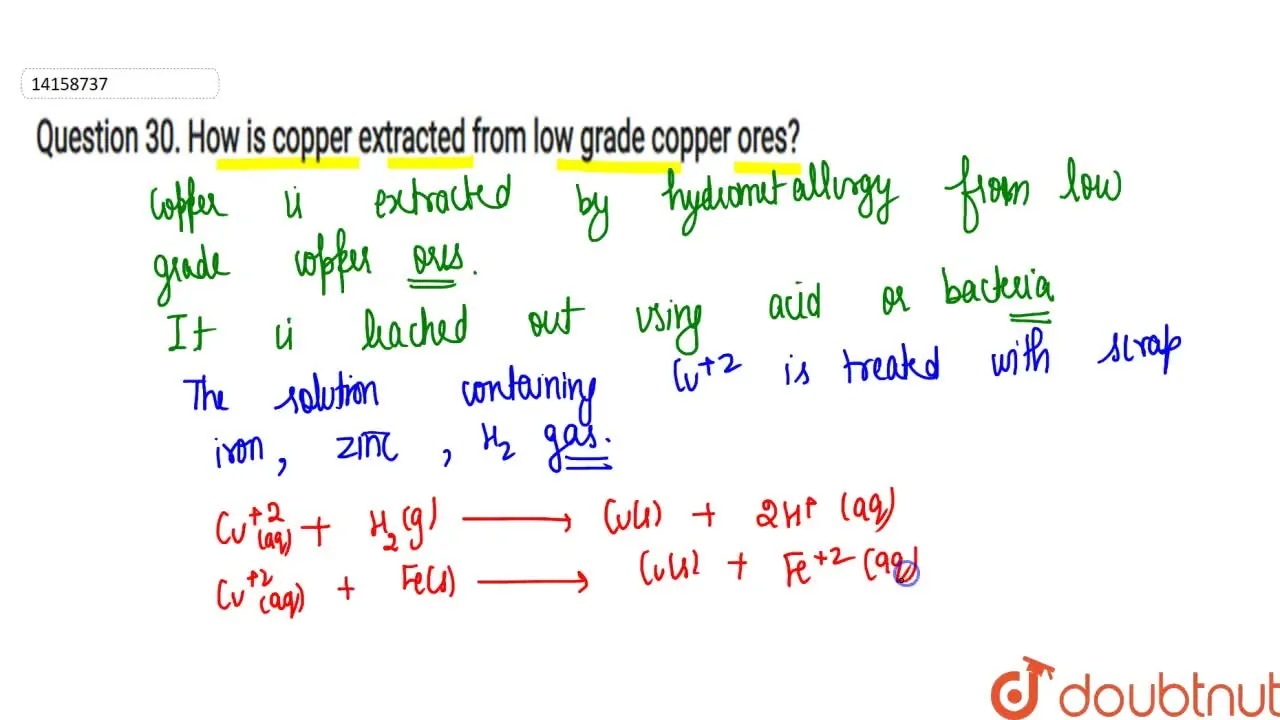 14158737
Question 30. How is copper extracted from low grade copper ores?
Copper is extracted by hydrometallurgy from low
grade copper ores.
It is leached out using acid or bacteria
The solution containing Cu+2 is treated with scrap
iron, zinc, H2 gas.
Cu+2(aq) + H2(g) ⟶ Cu(s) + 2H+ (aq)
Cu+2(aq) + Fe(s) ⟶ Cu(s) + Fe+2 (aq)
doubtnut